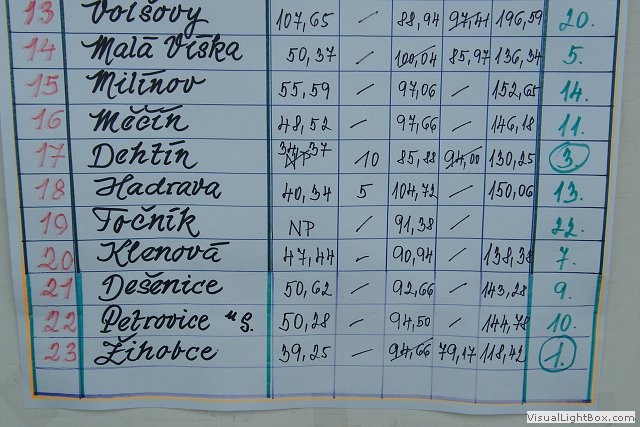 13 Volšovy 107,65 — 88,94 97,41 196,59 20.
14 Malá Víska 50,37 — 100,04 85,97 136,34 5.
15 Milínov 55,59 — 97,06 — 152,65 14.
16 Měčín 48,52 — 97,66 — 146,18 11.
17 Dehtín 34,37 10 85,88 94,00 130,25 3.
18 Hadrava 40,34 5 104,72 — 150,06 13.
19 Točník NP — 91,38 — 22.
20 Klenová 47,44 — 90,94 — 138,38 7.
21 Dešenice 50,62 — 92,66 — 143,28 9.
22 Petrovice u S. 50,28 — 94,50 — 144,78 10.
23 Žihobce 39,25 — 94,66 79,17 118,42 1.
VisualLightBox.com